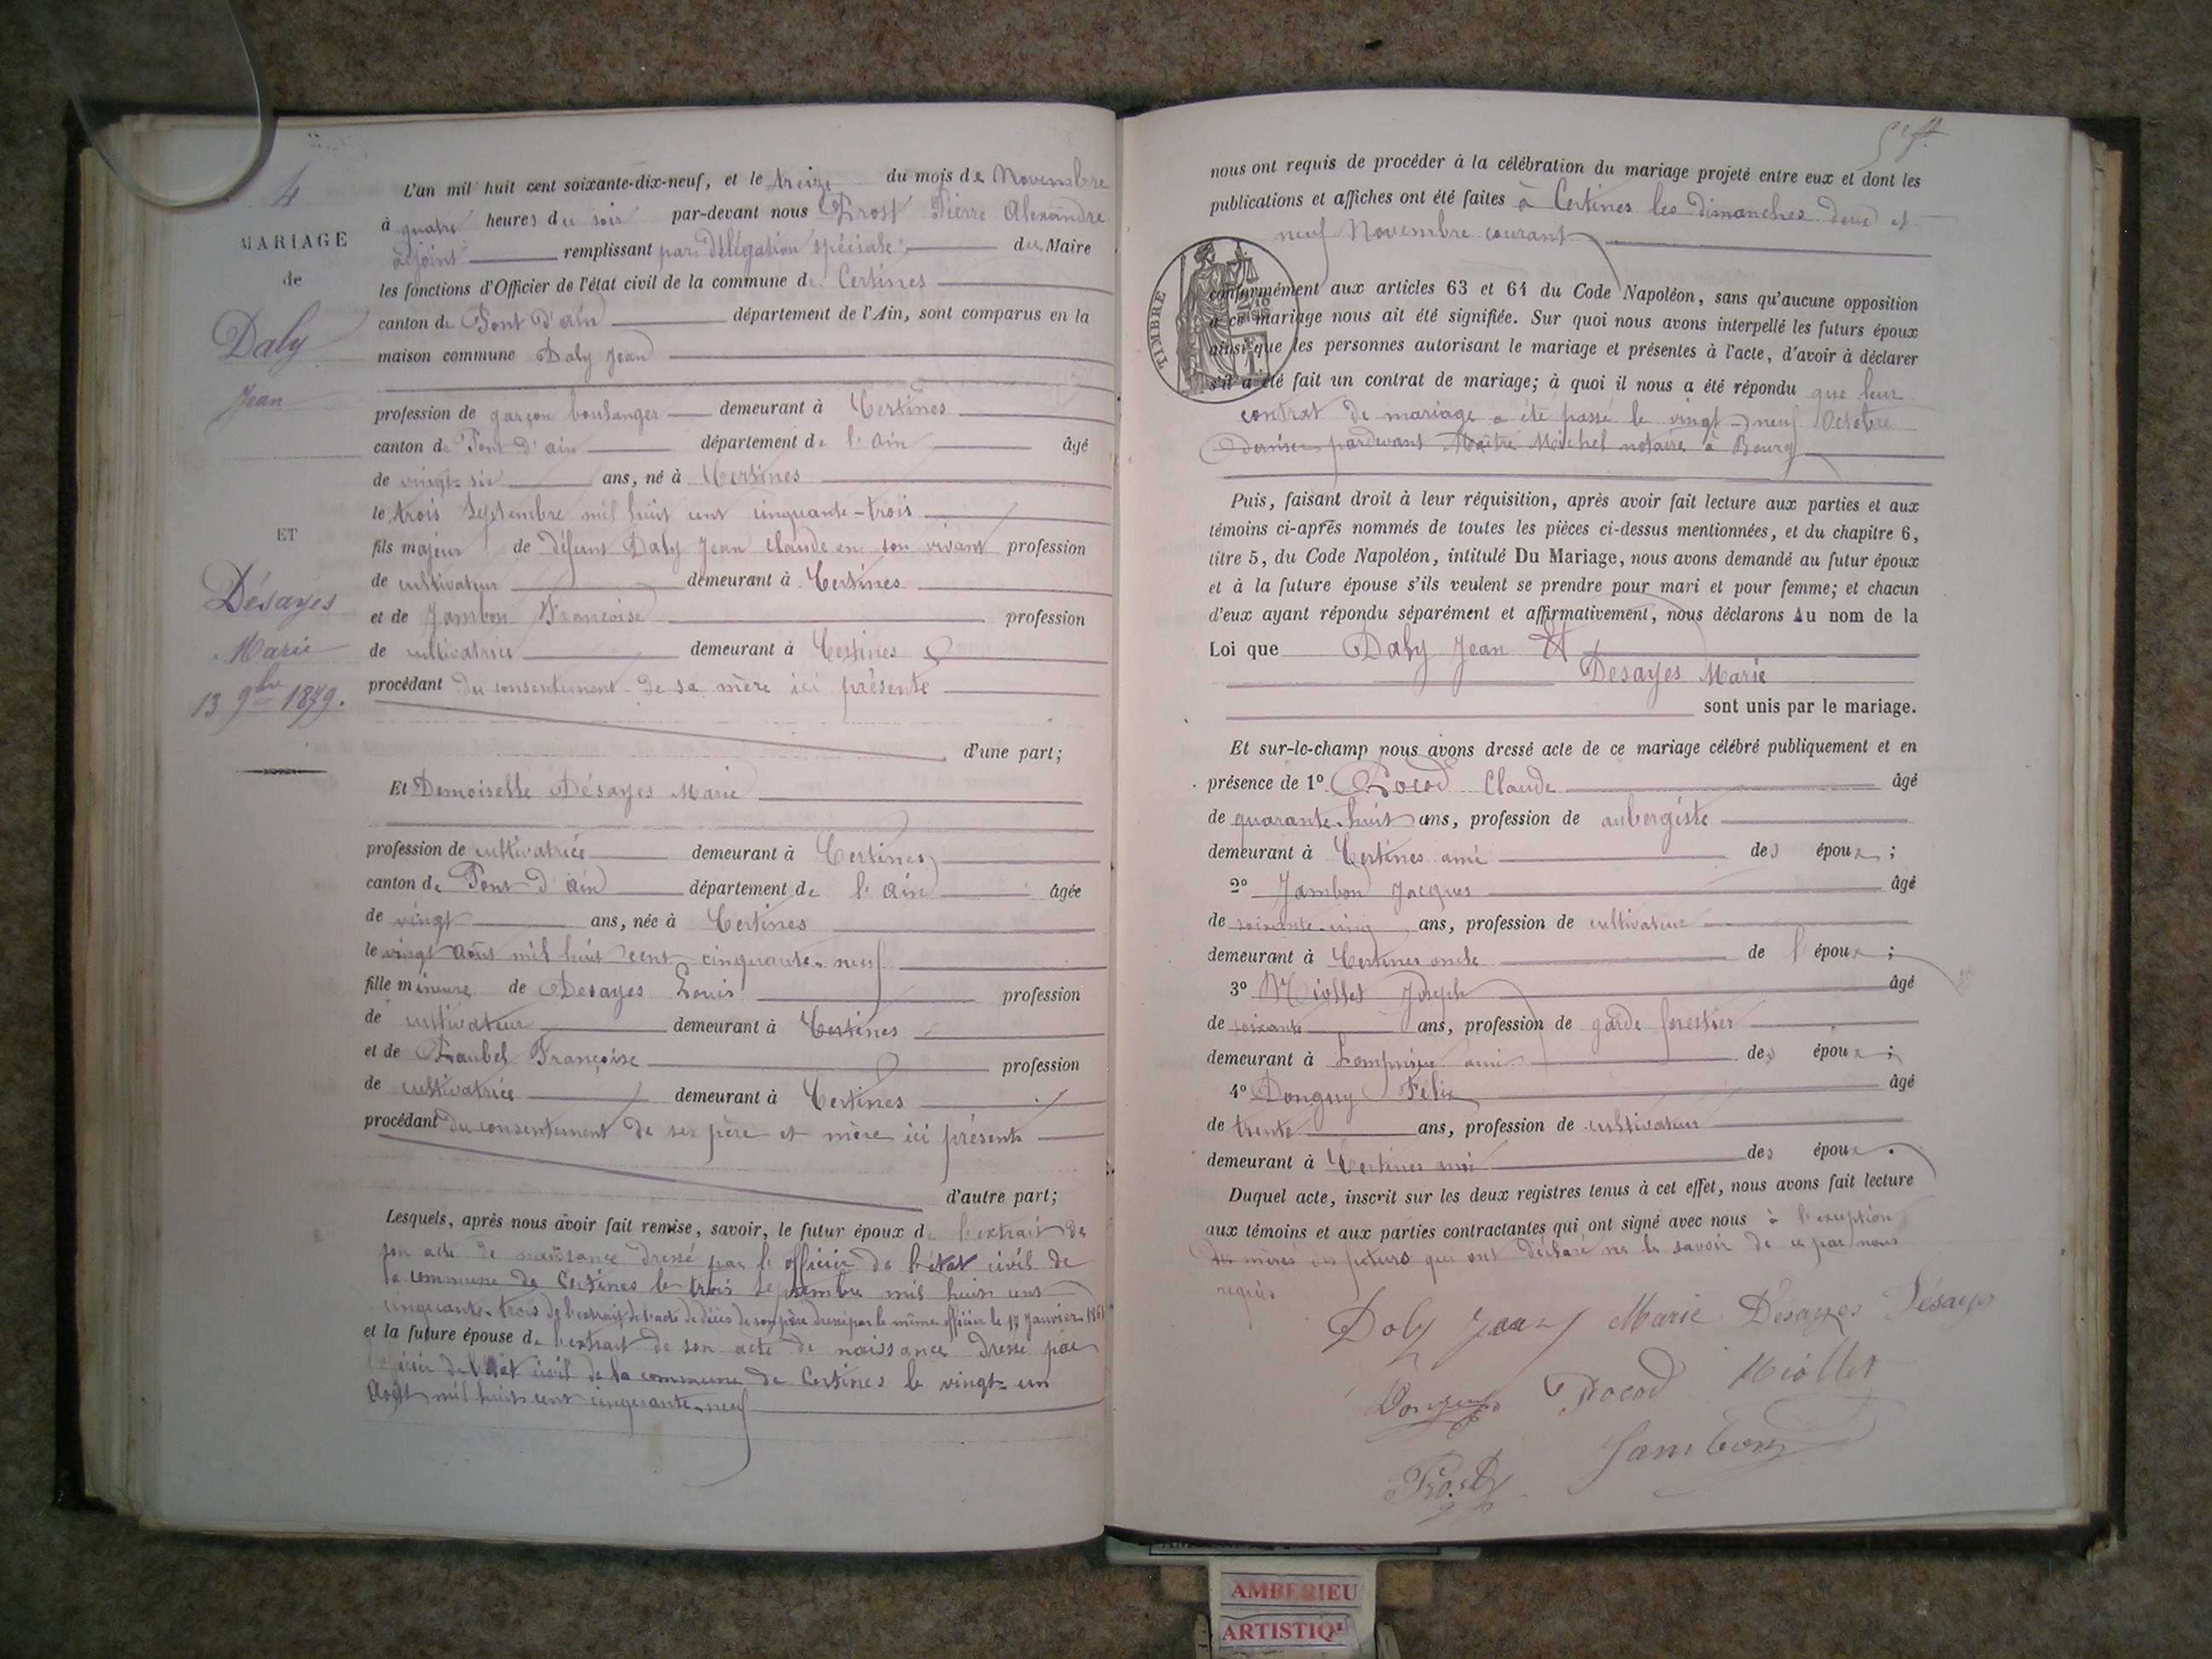 4
MARIAGE
de
Daly
Jean
ET
Désayes
Marie
13 9bre 1879.
L'an mil huit cent soixante-dix-neuf, et le treize du mois de Novembre
à quatre heures du soir par-devant nous Prost Pierre Alexandre
adjoint remplissant par délégation spéciale du Maire
les fonctions d'Officier de l'état civil de la commune de Certines
canton de Pont d'ain département de l'Ain, sont comparus en la
maison commune Daly Jean
profession de garçon boulanger demeurant à Certines
canton de Pont d'ain département de l'Ain âgé
de vingt-six ans, né à Certines
le trois Septembre mil huit cent cinquante-trois
fils majeur de défunt Daly Jean Claude en son vivant profession
de cultivateur demeurant à Certines
et de Jambon Françoise profession
de cultivatrice demeurant à Certines
procédant du consentement de sa mère ici présente
d'une part;
Et Demoiselle Désayes Marie
profession de cultivatrice demeurant à Certines
canton de Pont d'ain département de l'ain âgée
de vingt ans, née à Certines
le vingt Août mil huit cent cinquante-neuf
fille mineure de Desayes Louis profession
de cultivateur demeurant à Certines
et de Françoise profession
de cultivatrice demeurant à Certines
procédant du consentement de ses père et mère ici présents
d'autre part;
Lesquels, après nous avoir fait remise, savoir, le futur époux de l'extrait de
son acte de naissance dressé par l'officier de l'état civil de
la commune de Certines le trois Septembre mil huit cent
cinquante-trois de l'extrait de l'acte de décès de son père dressé par le même officier le Janvier
et la future épouse de l'extrait de son acte de naissance dressé par
l'officier de l'état civil de la commune de Certines le vingt-un
Août mil huit cent cinquante-neuf
nous ont requis de procéder à la célébration du mariage projeté entre eux et dont les
publications et affiches ont été faites à Certines les dimanches deux et
neuf Novembre courant
TIMBRE
conformément aux articles 63 et 64 du Code Napoléon, sans qu'aucune opposition
à ce mariage nous ait été signifiée. Sur quoi nous avons interpellé les futurs époux
ainsi que les personnes autorisant le mariage et présentes à l'acte, d'avoir à déclarer
s'il a été fait un contrat de mariage; à quoi il nous a été répondu que leur
contrat de mariage a été passé le vingt-neuf Octobre
dernier pardevant Maître Michel notaire à Bourg
Puis, faisant droit à leur réquisition, après avoir fait lecture aux parties et aux
témoins ci-après nommés de toutes les pièces ci-dessus mentionnées, et du chapitre 6,
titre 5, du Code Napoléon, intitulé Du Mariage, nous avons demandé au futur époux
et à la future épouse s'ils veulent se prendre pour mari et pour femme; et chacun
d'eux ayant répondu séparément et affirmativement, nous déclarons Au nom de la
Loi que Daly Jean Et
Desayes Marie
sont unis par le mariage.
Et sur-le-champ nous avons dressé acte de ce mariage célébré publiquement et en
présence de 1º Pocod Claude âgé
de quarante-huit ans, profession de aubergiste
demeurant à Certines ami des époux;
2º Jambon Jacques âgé
de soixante-cinq ans, profession de cultivateur
demeurant à Certines oncle de l'époux;
3º Miollet Joseph âgé
de soixante ans, profession de garde forestier
demeurant à ami des époux;
4º Donguy Félix âgé
de trente ans, profession de cultivateur
demeurant à Certines ami des époux.
Duquel acte, inscrit sur les deux registres tenus à cet effet, nous avons fait lecture
aux témoins et aux parties contractantes qui ont signé avec nous à l'exception
des mères des futurs qui ont déclaré ne le savoir de ce par nous
requis
Daly Jean Marie Désayes Désayes
Donguy Pocod Miollet
Jambon
Prost
AMBERIEU
ARTISTIQ